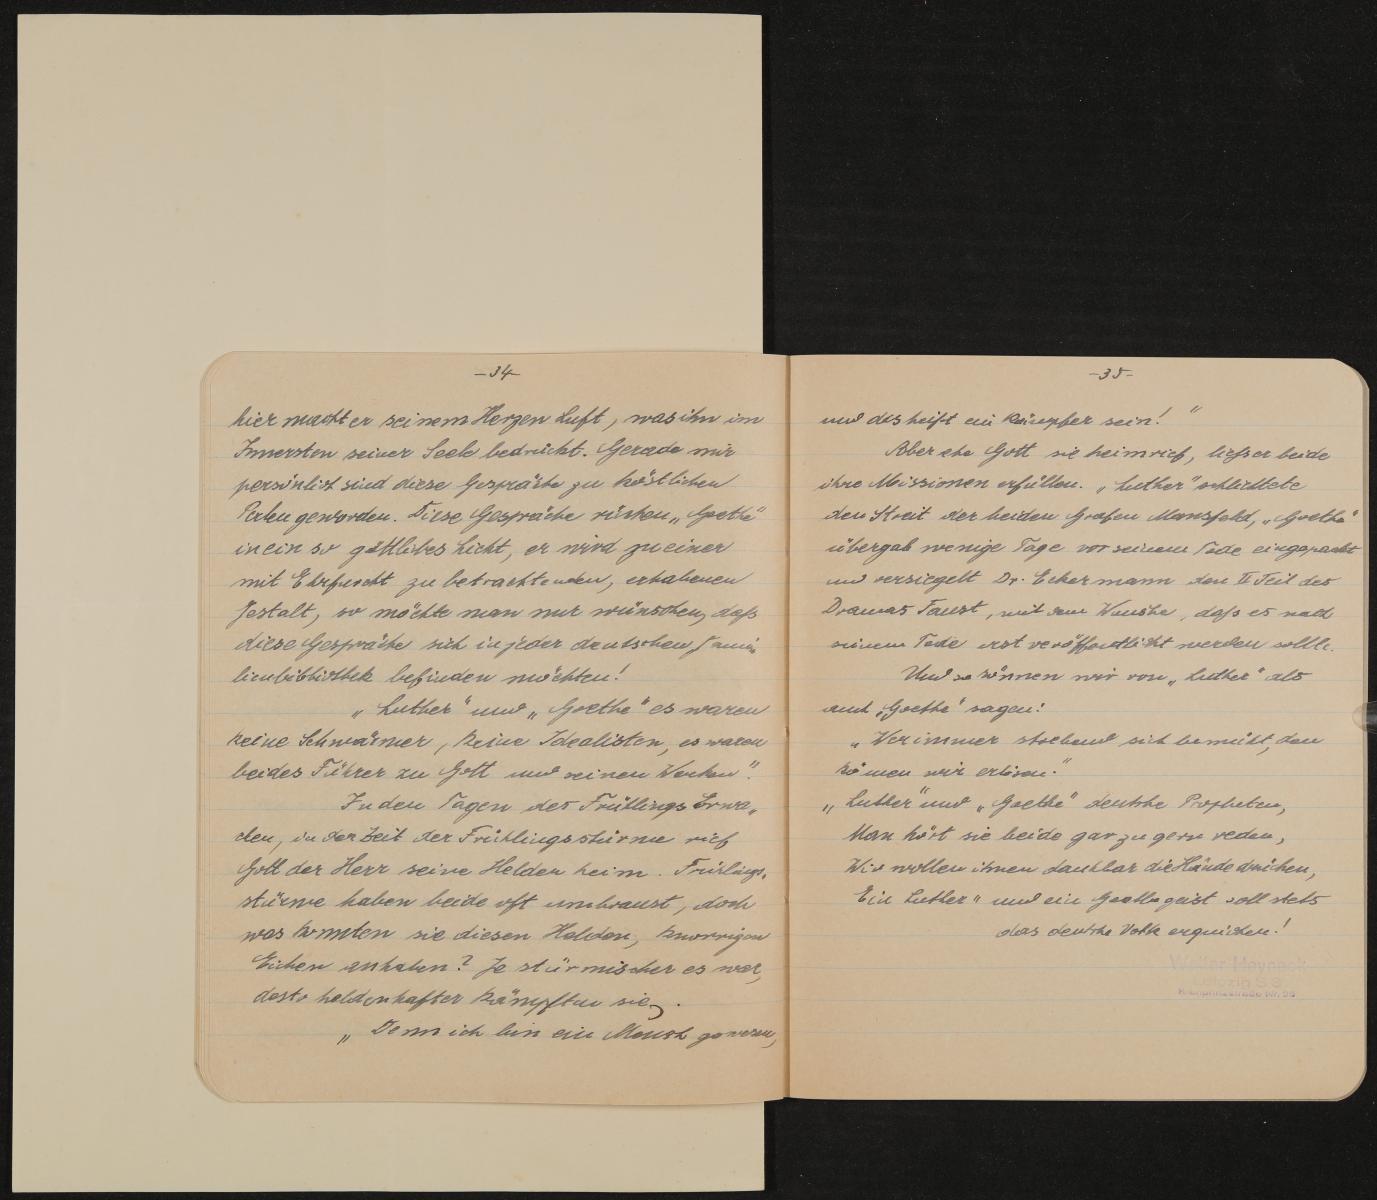 -34-
hier macht er seinem Herzen Luft, was ihn im
Innersten seiner Seele bedrückt. Gerade mir
persönlich sind diese Gespräche zu köstlichen
Perlen geworden. Diese Gespräche rücken „Goethe"
in ein so göttliches Licht, er wird zu einer
mit Ehrfurcht zu betrachtenden, erhabenen
Gestalt, so möchte man nur wünschen, daß
diese Gespräche sich in jeder deutschen Fami-
lienbibliothek befinden möchten!
„Luther" und „Goethe" es waren
keine Schwärmer, keine Idealisten, es waren
beides Führer zu Gott und seinen Werken".
In den Tagen des Frühlings Erwa-
chen, in der Zeit der Frühlingsstürme rief
Gott der Herr seine Helden heim. Frühlings-
stürme haben beide oft umbraust, doch
was konnten sie diesen Helden, knorrigen
Eichen anhaben? Je stürmischer es war,
desto heldenhafter kämpften sie.
„Denn ich bin ein Mensch gewesen,
-35-
und das heißt ein Kämpfer sein!"
Aber ehe Gott sie heimrief, ließ er beide
ihre Missionen erfüllen. „Luther" schlichtete
den Streit der beiden Grafen Mansfeld, „Goethe"
übergab wenige Tage vor seinem Tode eingepackt
und versiegelt Dr. Eckermann den II Teil des
Dramas Faust, mit dem Wunsche, daß es nach
seinem Tode erst veröffentlicht werden sollte.
Und so können wir von „Luther" als
auch „Goethe" sagen:
„Wer immer strebend sich bemüht, den
können wir erlösen."
„Luther" und „Goethe" deutsche Propheten,
Man hört sie beide gar zu gern reden,
Wir wollen ihnen dankbar die Hände drücken,
Ein Luther" und ein Goethegeist soll stets
das deutsche Volk erquicken!
Walter Heyneck
Leipzig S 3